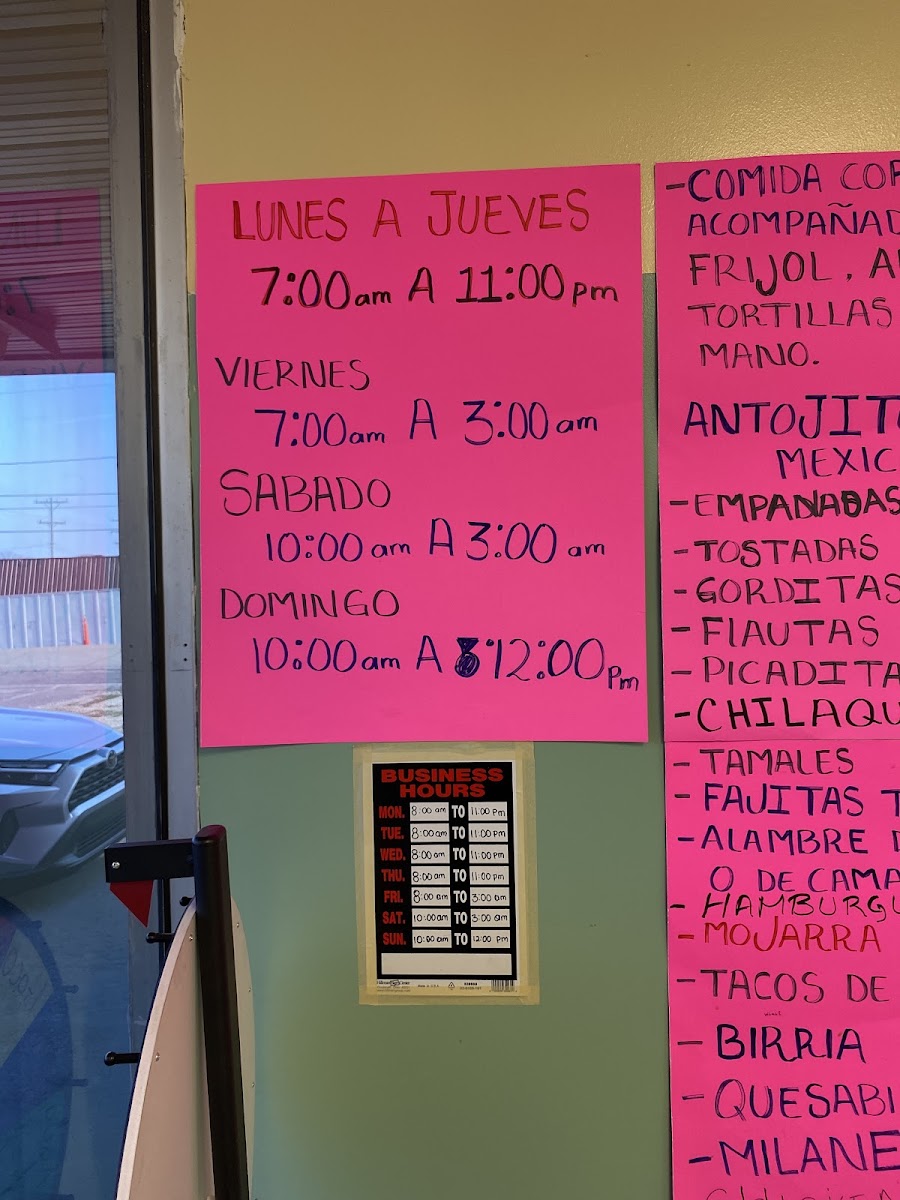 LUNES A JUEVES
7:00am A 11:00pm
VIERNES
7:00am A 3:00am
SABADO
10:00am A 3:00am
DOMINGO
10:00am A 12:00pm
BUSINESS
HOURS
MON. 8:00am TO 11:00pm
TUE. 8:00am TO 11:00pm
WED. 8:00am TO 11:00pm
THU. 8:00am TO 11:00pm
FRI. 8:00am TO 3:00am
SAT. 10:00am TO 3:00am
SUN. 10:00am TO 12:00pm
-COMIDA COR
ACOMPAÑAD
FRIJOL, A
TORTILLAS
MANO.
ANTOJIT
MEXIC
-EMPANADAS
-TOSTADAS
-GORDITAS
-FlAUTAS
-PICADITA
-CHILAQU
-TAMALES
-FAJITAS T
-ALAMBRE
O DE CAMA
-HAMBURGU
-MOJARRA
-TACOS DE
-BIRRIA
-QUESABI
-MILANE